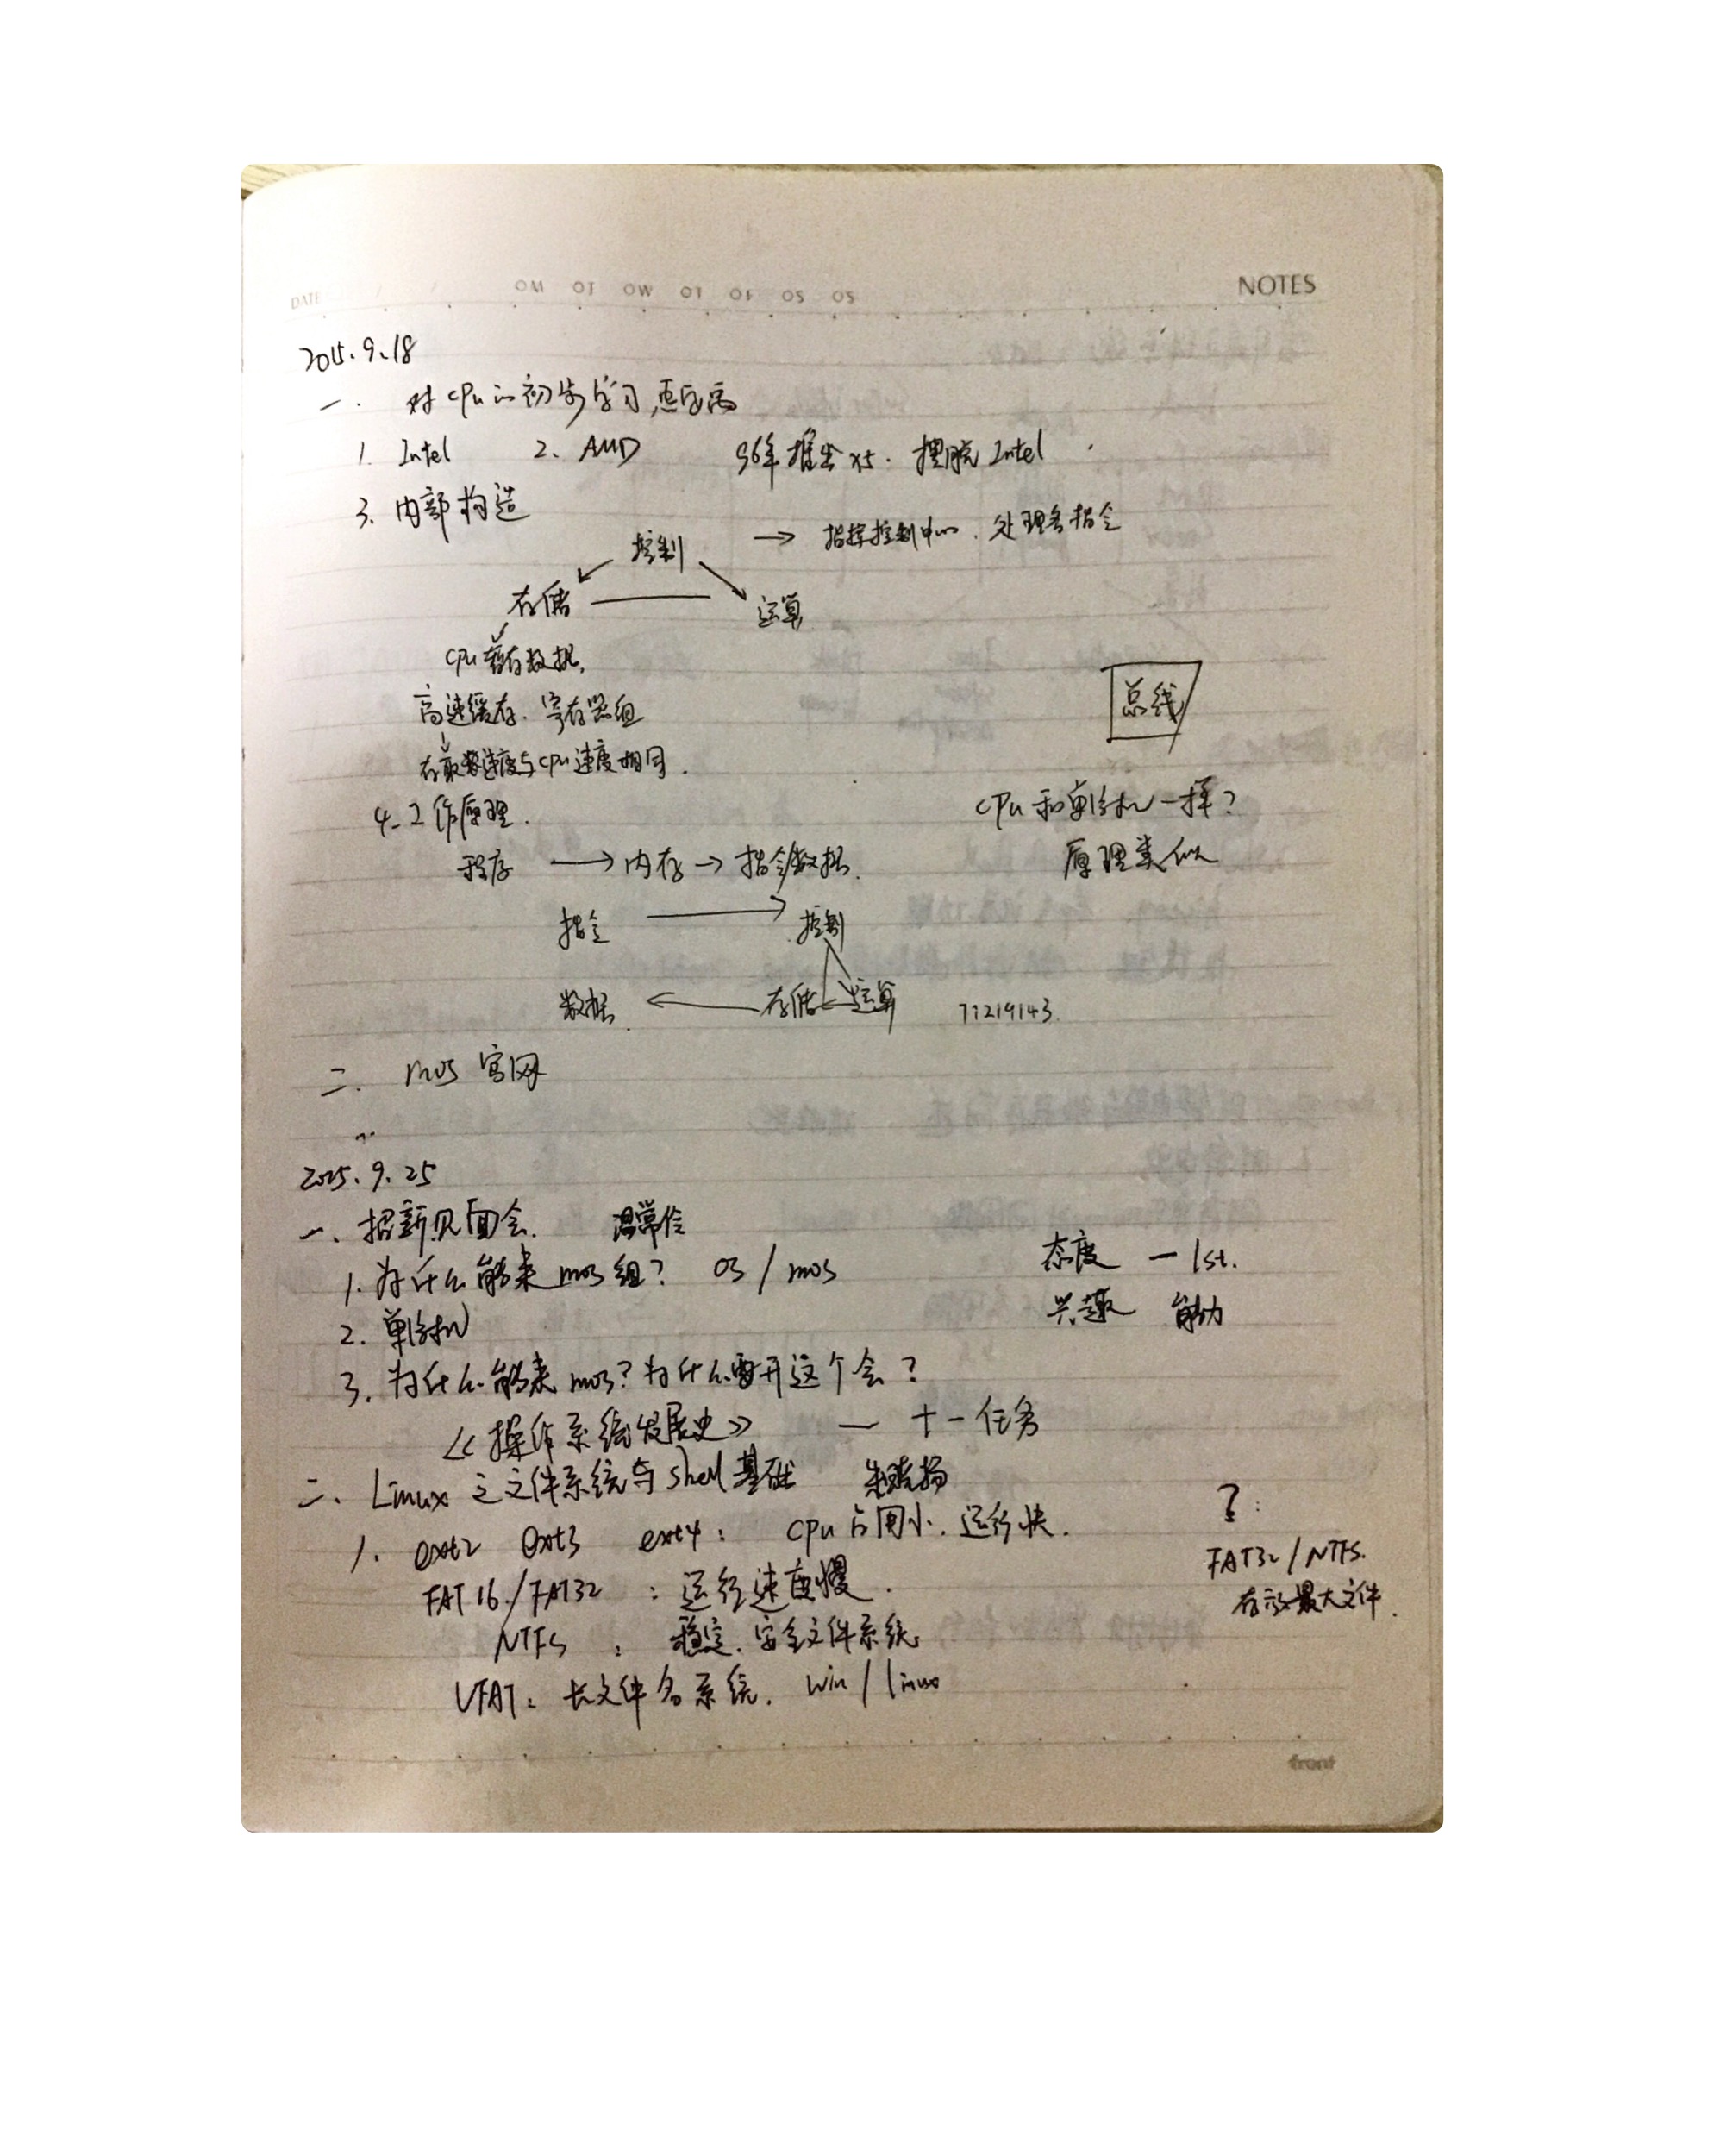 DATE / /
NOTES
2015.9.18
一. 对CPU的初步学习
1. Intel 2. AMD 96年推出x5. 摆脱Intel
3. 内部构造
控制 → 指挥控制中心. 处理各指令
存储 运算
CPU暂存数据.
高速缓存. 寄存器组
总线
存取速度与CPU速度相同.
4. 工作原理.
CPU和单片机一样?
程序 → 内存 → 指令/数据.
原理类似
指令 → 控制
数据 存储 运算 71219143.
二. mos 官网
2015.9.25
一、招新见面会.
1. 为什么能来mos组? os / mos
态度 — 1st.
2. 单片机
兴趣 能力
3. 为什么能来mos? 为什么要开这个会?
《操作系统发展史》 — 十一任务
二、Linux 之文件系统与shell基础
1. ext2 ext3 ext4: CPU占用小. 运行快.
?:
FAT16/FAT32 : 运行速度慢.
FAT32/NTFS.
存放最大文件.
NTFS : 稳定. 安全文件系统
VFAT: 长文件名系统. Win / linux
front